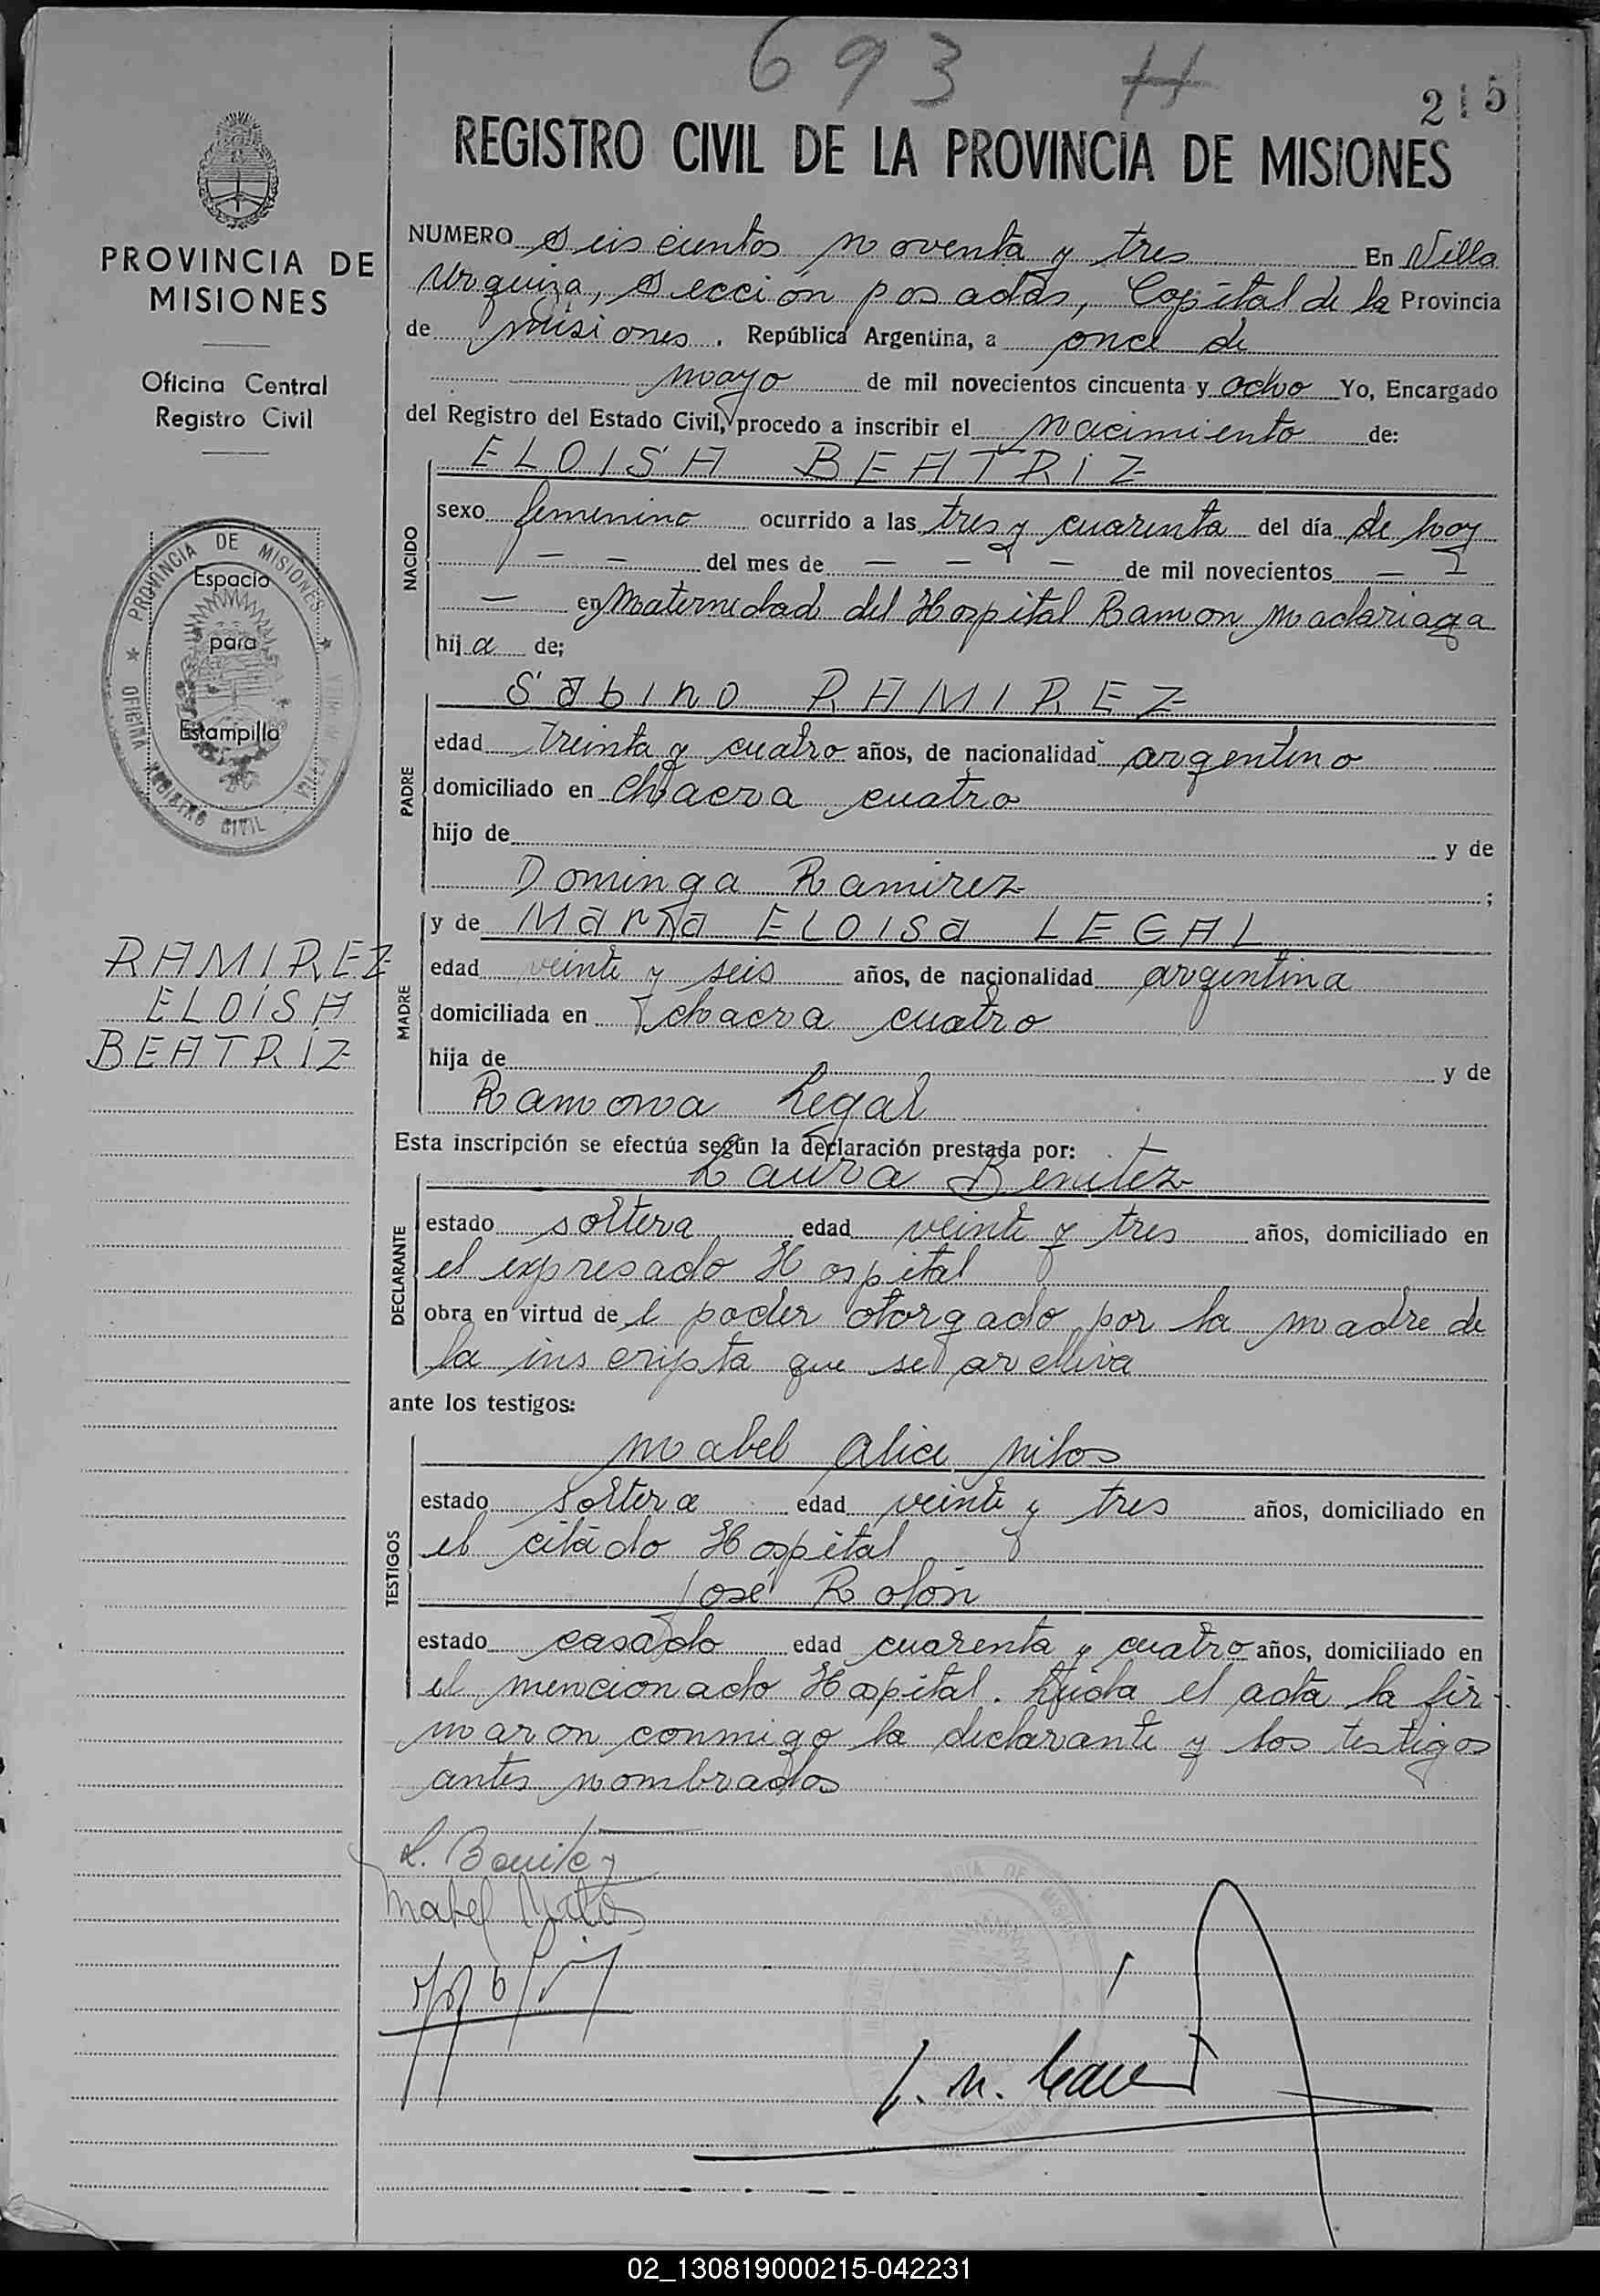 693 H
215
REGISTRO CIVIL DE LA PROVINCIA DE MISIONES
PROVINCIA DE
MISIONES
Oficina Central
Registro Civil
PROVINCIA DE MISIONES
OFICINA
REGISTRO CIVIL
Espacio
para
Estampilla
RAMIREZ
ELOISA
BEATRIZ
NUMERO seiscientos noventa y tres En Villa
Urquiza, sección posadas, Capital de la Provincia
de misiones. República Argentina, a once de
mayo de mil novecientos cincuenta y ocho Yo, Encargado
del Registro del Estado Civil, procedo a inscribir el nacimiento de:
NACIDO
ELOISA BEATRIZ
sexo femenino ocurrido a las tres y cuarenta del día de hoy
— — del mes de — — — de mil novecientos — —
— en Maternidad del Hospital Ramon Madariaga
hij a de;
PADRE
Sabino RAMIREZ
edad treinta y cuatro años, de nacionalidad argentino
domiciliado en chacra cuatro
hijo de y de
Dominga Ramirez ;
MADRE
y de María ELOISA LEGAL
edad veinte y seis años, de nacionalidad argentina
domiciliada en chacra cuatro
hija de y de
Ramona Legal
Esta inscripción se efectúa según la declaración prestada por:
DECLARANTE
Laura Benitez
estado soltera edad veinte y tres años, domiciliado en
el expresado Hospital
obra en virtud de l poder otorgado por la madre de
la inscripta que se archiva
ante los testigos:
TESTIGOS
Mabel Alice
estado soltera edad veinte y tres años, domiciliado en
el citado Hospital
José Rolón
estado casado edad cuarenta y cuatro años, domiciliado en
el mencionado Hospital. Leida el acta la fir-
maron conmigo la declarante y los testigos
antes nombrados
L. Benitez
Mabel
02_130819000215-042231